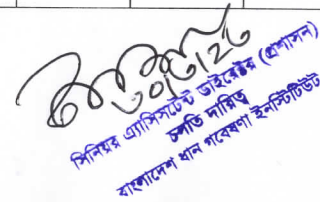 ৩০/৬/২৫
সিনিয়র এ্যাসিসটেন্ট ডাইরেক্টর (প্রশাসন)
চলতি দায়িত্ব
বাংলাদেশ ধান গবেষণা ইনস্টিটিউট